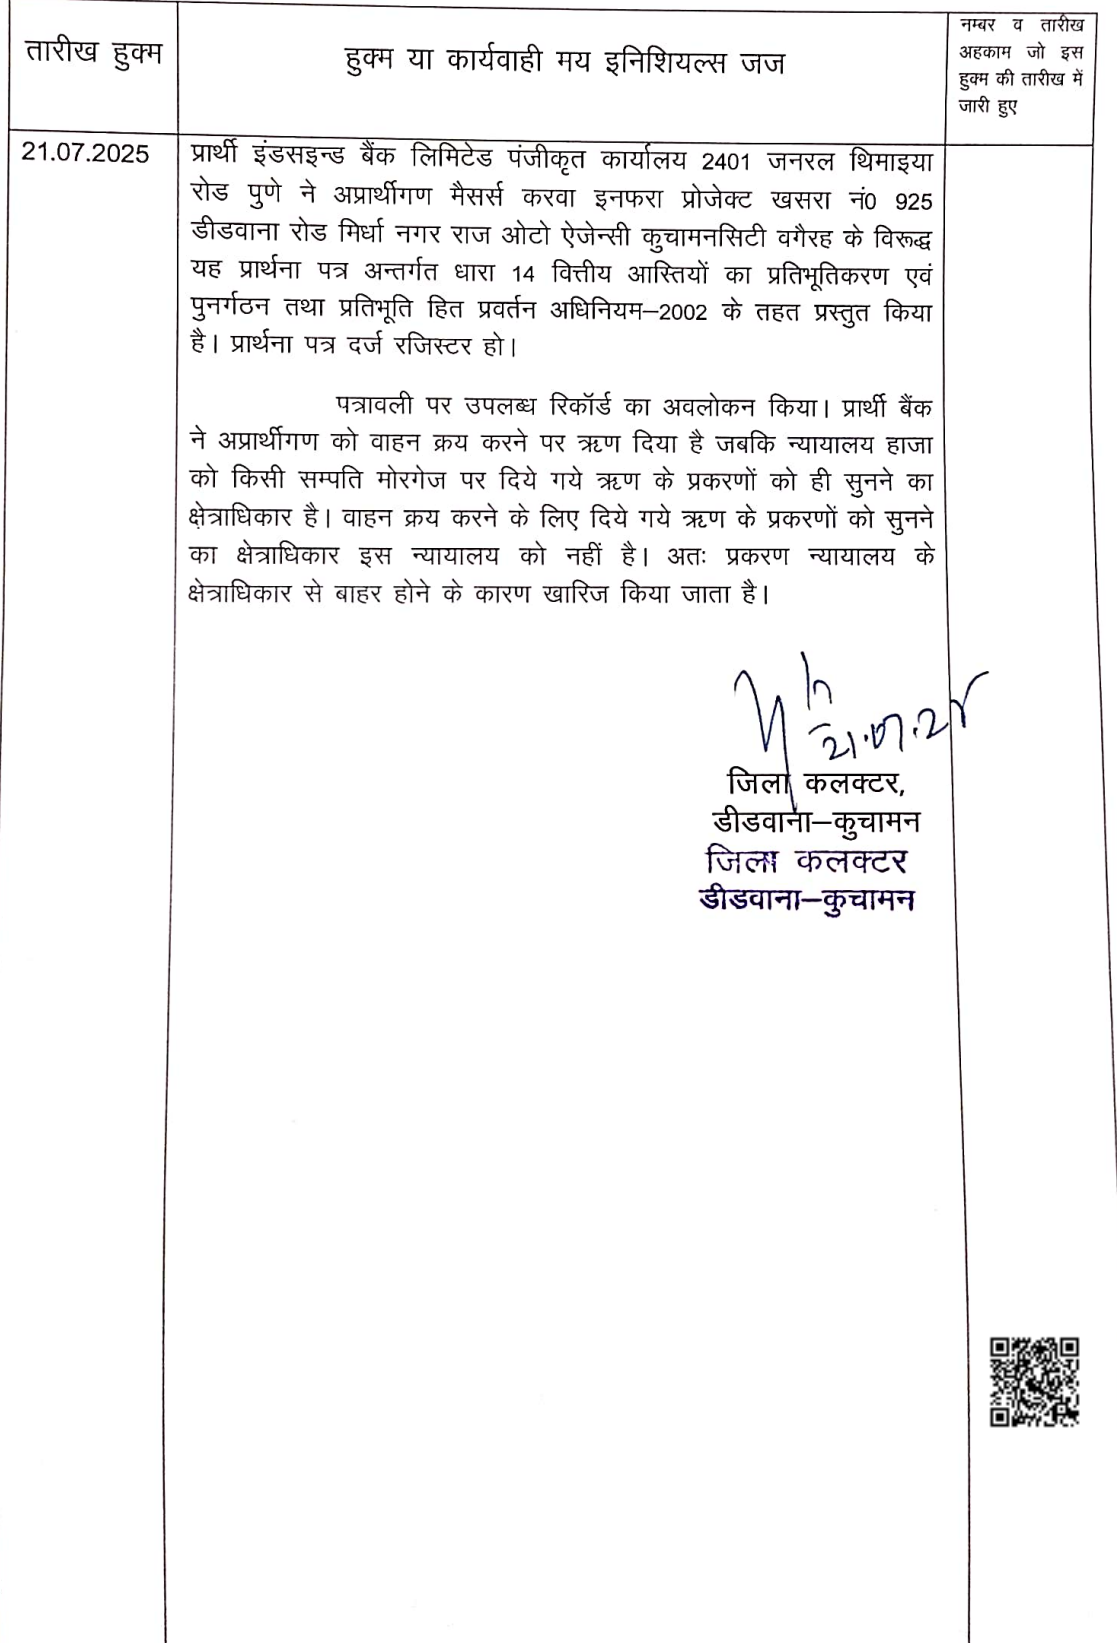 तारीख हुक्म
हुक्म या कार्यवाही मय इनिशियल्स जज
नम्बर व तारीख
अहकाम जो इस
हुक्म की तारीख में
जारी हुए
21.07.2025
प्रार्थी इंडसइन्ड बैंक लिमिटेड पंजीकृत कार्यालय 2401 जनरल थिमाइया
रोड पुणे ने अप्रार्थीगण मैसर्स करवा इनफरा प्रोजेक्ट खसरा नं0 925
डीडवाना रोड मिर्धा नगर राज ओटो ऐजेन्सी कुचामनसिटी वगैरह के विरूद्ध
यह प्रार्थना पत्र अन्तर्गत धारा 14 वित्तीय आस्तियों का प्रतिभूतिकरण एवं
पुनर्गठन तथा प्रतिभूति हित प्रवर्तन अधिनियम–2002 के तहत प्रस्तुत किया
है। प्रार्थना पत्र दर्ज रजिस्टर हो।
पत्रावली पर उपलब्ध रिकॉर्ड का अवलोकन किया। प्रार्थी बैंक
ने अप्रार्थीगण को वाहन क्रय करने पर ऋण दिया है जबकि न्यायालय हाजा
को किसी सम्पति मोरगेज पर दिये गये ऋण के प्रकरणों को ही सुनने का
क्षेत्राधिकार है। वाहन क्रय करने के लिए दिये गये ऋण के प्रकरणों को सुनने
का क्षेत्राधिकार इस न्यायालय को नहीं है। अतः प्रकरण न्यायालय के
क्षेत्राधिकार से बाहर होने के कारण खारिज किया जाता है।
21.07.25
जिला कलक्टर,
डीडवाना–कुचामन
जिला कलक्टर
डीडवाना–कुचामन